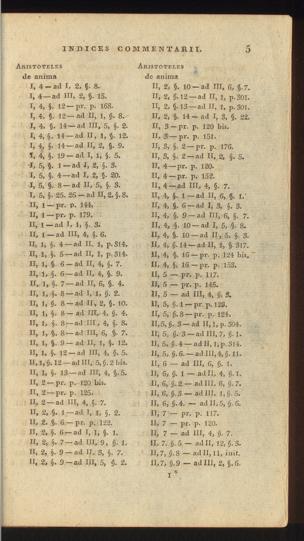 INDICES COMMENTARII. 5
ARISTOTELES
de anima
I, 4 — ad I, 2. §. 8.
I, 4 — ad III, 2, §. 15.
I, 4, §. 12 — pr. p. 168.
I, 4, §. 12 — ad II, 1, §. 8.
I, 4, §. 14 — ad III, 5, §. 2.
I, 4, §. 14 — ad II, 1, §. 12.
I, 4, §. 14 — ad II, 2, §. 9.
I, 4, §. 19 — ad I, 1, §. 5.
I, 5, §. 1 — ad I, 2, §. 3.
I, 5, §. 4 — ad I, 2, §. 20.
I, 5, §. 8 — ad II, 5, §. 3.
I, 5, §. 25. 26 — ad II, 2, §. 8.
II, 1 — pr. p. 144.
II, 1 — pr. p. 179.
II, 1 — ad I, 1, §. 3.
II, 1 — ad III, 4, §. 6.
II, 1, §. 4 — ad II. 1, p. 314.
II, 1, §. 5 — ad II, 1, p. 314.
II, 1, §. 6 — ad II, 4, §. 7.
II, 1, §. 6 — ad II, 4, §. 9.
II, 1, §. 7 — ad II, 6, §. 4.
II, 1, §. 8 — ad I, 1, §. 2.
II, 1, §. 8 — ad II, 2, §. 10.
II, 1, §. 8 — ad III, 4, §. 4.
II, 1, §. 8 — ad III, 4, §. 8.
II, 1, §. 8 — ad III, 6, §. 7.
II, 1, §. 9 — ad II, 1, §. 12.
II, 1, §. 12 — ad III, 4, §. 5.
II, 1, §. 12 — ad III, 5, §. 2 bis.
II, 1, §. 13 — ad III, 4, §. 5.
II, 2 — pr. p. 120 bis.
II, 2 — pr. p. 125.
II, 2 — ad III, 4, §. 7.
II, 2, §. 1 — ad I, 1, §. 2.
II, 2, §. 6 — pr. p. 122.
II, 2, §. 6 — ad I, 1, §. 1.
II, 2, §. 7 — ad III, 9, §. 1.
II, 2, §. 9 — ad II, 3, §. 7.
II, 2, §. 9 — ad III, 5, §. 2.
ARISTOTELES
de anima
II, 2, §. 10 — ad III, 6, §. 7.
II, 2, §. 12 — ad II, 1, p. 301.
II, 2, §. 13 — ad II, 1, p. 301.
II, 2, §. 14 — ad I, 3, §. 22.
II, 3 — pr. p. 120 bis.
II, 3 — pr. p. 151.
II, 3, §. 2 — pr. p. 176.
II, 3, §. 2 — ad II, 2, §. 5.
II, 4 — pr. p. 120.
II, 4 — pr. p. 152.
II, 4 — ad III, 4, §. 7.
II, 4, §. 1 — ad II, 6, §. 1.
II, 4, §. 6 — ad I, 3, §. 3.
II, 4, §. 9 — ad III, 6, §. 7.
II, 4, §. 10 — ad I, 5, §. 8.
II, 4, §. 10 — ad II, 5, §. 3.
II, 4, §. 14 — ad II, 1, §. 317.
II, 4, §. 16 — pr. p. 124 bis.
II, 4, §. 16 — pr. p. 153.
II, 5 — pr. p. 117.
II, 5 — pr. p. 145.
II, 5 — ad III, 4, §. 3.
II, 5, §. 1 — pr. p. 122.
II, 5, §. 8 — pr. p. 124.
II, 5, §. 3 — ad II, 1, p. 304.
II, 5, §. 3 — ad III, 7, §. 1.
II, 5, §. 4 — ad II, 1, p. 314.
II, 5, §. 6. — ad III, 4, §. 11.
II, 6 — ad III, 6, §. 1.
II, 6, §. 1 — ad II, 4, §. 1.
II, 6, §. 2 — ad III, 6, §. 7.
II, 6, §. 3 — ad III, 1, §. 5.
II, 6, §. 4. — ad II, 5, §. 6.
II, 7 — pr. p. 117.
II, 7 — pr. p. 120.
II, 7 — ad III, 4, §. 7.
II, 7. §. 5 — ad II, 12, §. 3.
II, 7, §. 8 — ad II, 11, init.
II, 7, §. 9 — ad III, 2, §. 6.
1 *